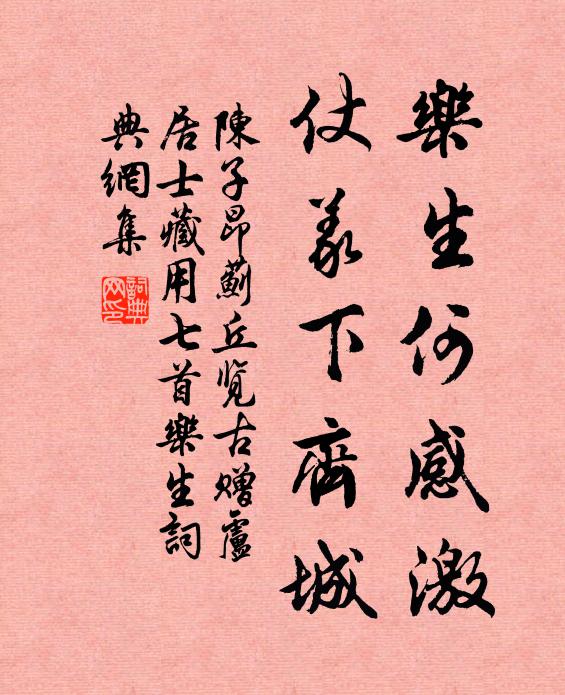 樂生何感激
仗義下齊城
陳子昂薊丘覽古赠盧
居士藏用七首樂生詞
典網集
詞典网印